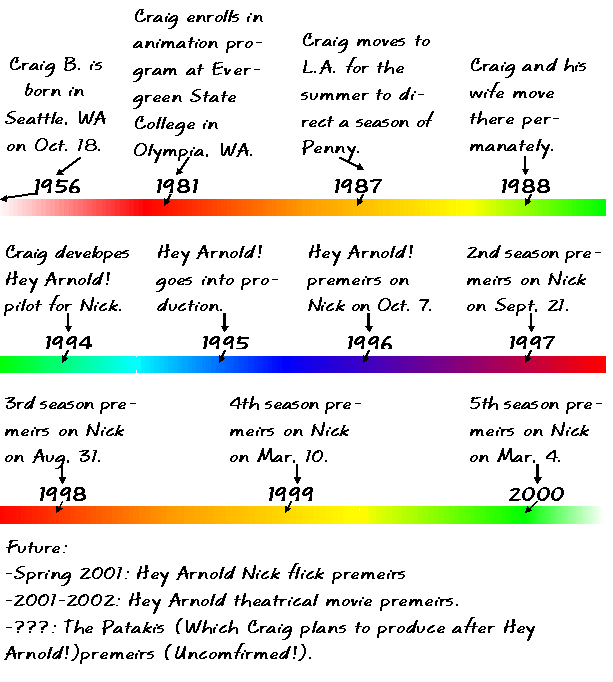 Craig B. is
born in
Seattle, WA
on Oct. 18.
Craig enrolls in
animation pro-
gram at Ever-
green State
College in
Olympia, WA.
Craig moves to
L.A. for the
summer to di-
rect a season of
Penny.
Craig and his
wife move
there per-
manately.
1956
1981
1987
1988
Craig developes
Hey Arnold!
pilot for Nick.
Hey Arnold!
goes into pro-
duction.
Hey Arnold!
premeirs on
Nick on Oct. 7.
2nd season pre-
meirs on Nick
on Sept. 21.
1994
1995
1996
1997
3rd season pre-
meirs on Nick
on Aug. 31.
4th season pre-
meirs on Nick
on Mar. 10.
5th season pre-
meirs on Nick
on Mar. 4.
1998
1999
2000
Future:
-Spring 2001: Hey Arnold Nick flick premeirs
-2001-2002: Hey Arnold theatrical movie premeirs.
-???: The Patakis (Which Craig plans to produce after Hey
Arnold!)premeirs (Uncomfirmed!).